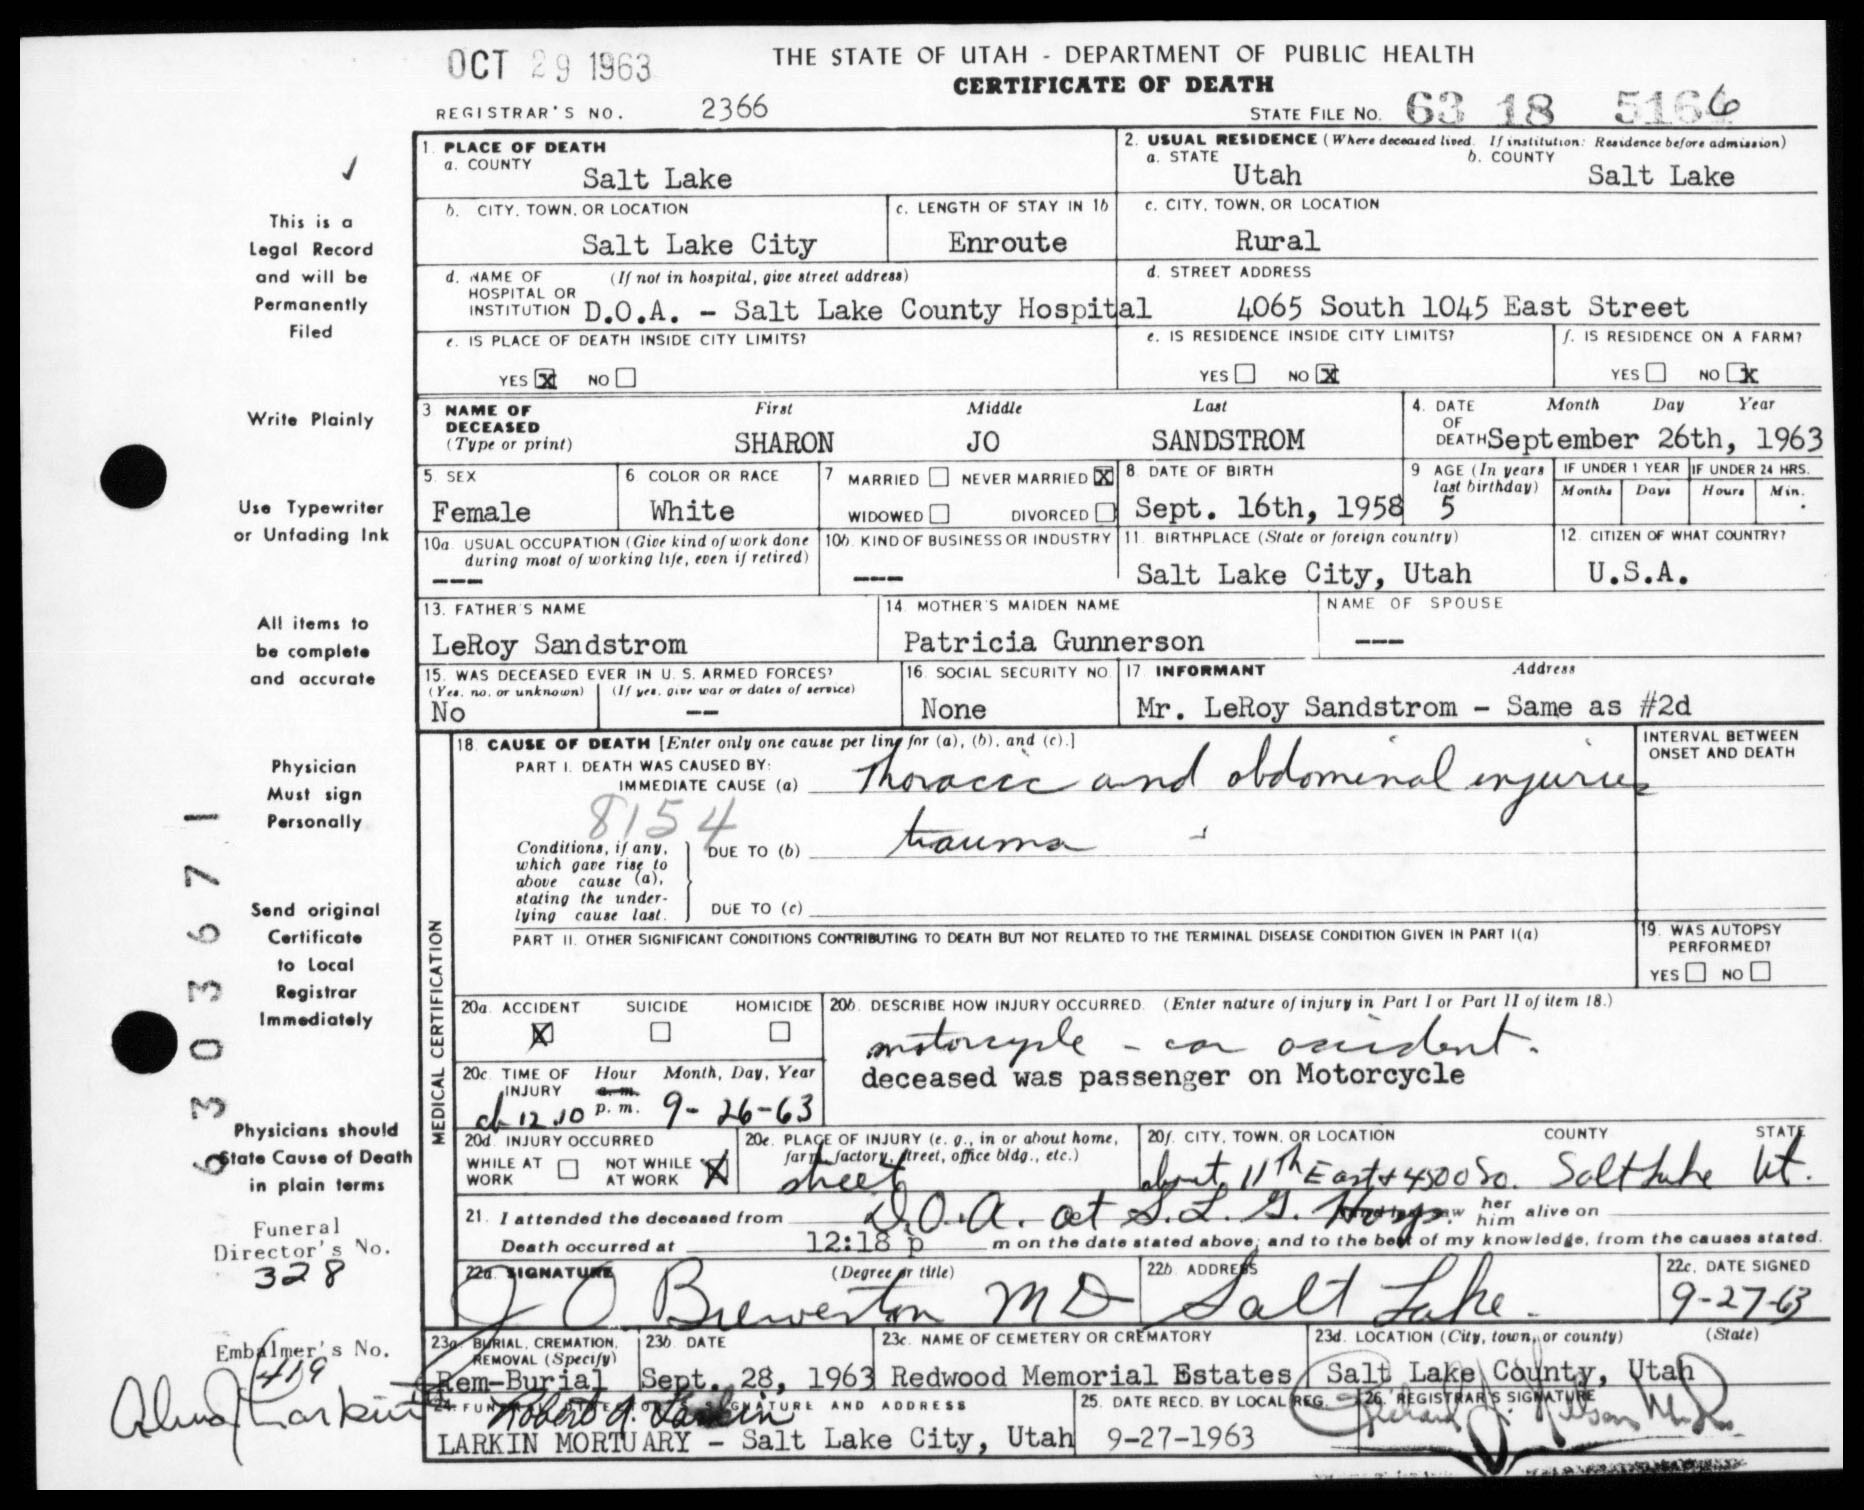 OCT 29 1963
THE STATE OF UTAH - DEPARTMENT OF PUBLIC HEALTH
CERTIFICATE OF DEATH
REGISTRAR'S NO. 2366
STATE FILE NO. 63 18 5166
This is a
Legal Record
and will be
Permanently
Filed
Write Plainly
Use Typewriter
or Unfading Ink
All items to
be complete
and accurate
Physician
Must sign
Personally
Send original
Certificate
to Local
Registrar
Immediately
Physicians should
State Cause of Death
in plain terms
Funeral
Director's No.
328
Embalmer's No.
419
6303671
1. PLACE OF DEATH
a. COUNTY
Salt Lake
2. USUAL RESIDENCE (Where deceased lived. If institution: Residence before admission)
a. STATE b. COUNTY
Utah Salt Lake
b. CITY, TOWN, OR LOCATION
Salt Lake City
c. LENGTH OF STAY IN 1b
Enroute
c. CITY, TOWN, OR LOCATION
Rural
d. NAME OF HOSPITAL OR INSTITUTION (If not in hospital, give street address)
D.O.A. - Salt Lake County Hospital
d. STREET ADDRESS
4065 South 1045 East Street
e. IS PLACE OF DEATH INSIDE CITY LIMITS?
YES X NO
e. IS RESIDENCE INSIDE CITY LIMITS?
YES NO X
f. IS RESIDENCE ON A FARM?
YES NO X
3 NAME OF DECEASED (Type or print)
First Middle Last
SHARON JO SANDSTROM
4. DATE OF DEATH Month Day Year
September 26th, 1963
5. SEX
Female
6 COLOR OR RACE
White
7 MARRIED NEVER MARRIED X
WIDOWED DIVORCED
8 DATE OF BIRTH
Sept. 16th, 1958
9 AGE (In years last birthday)
5
IF UNDER 1 YEAR
Months Days
IF UNDER 24 HRS.
Hours Min.
10a. USUAL OCCUPATION (Give kind of work done during most of working life, even if retired)
---
10b. KIND OF BUSINESS OR INDUSTRY
---
11. BIRTHPLACE (State or foreign country)
Salt Lake City, Utah
12. CITIZEN OF WHAT COUNTRY?
U.S.A.
13. FATHER'S NAME
LeRoy Sandstrom
14. MOTHER'S MAIDEN NAME
Patricia Gunnerson
NAME OF SPOUSE
---
15. WAS DECEASED EVER IN U. S. ARMED FORCES?
(Yes, no, or unknown) (If yes, give war or dates of service)
No --
16. SOCIAL SECURITY NO.
None
17 INFORMANT Address
Mr. LeRoy Sandstrom - Same as #2d
MEDICAL CERTIFICATION
18. CAUSE OF DEATH [Enter only one cause per line for (a), (b), and (c).]
INTERVAL BETWEEN ONSET AND DEATH
PART I. DEATH WAS CAUSED BY:
IMMEDIATE CAUSE (a) Thoracic and abdominal injuries
8154
Conditions, if any, which gave rise to above cause (a), stating the underlying cause last.
DUE TO (b) trauma
DUE TO (c)
PART II. OTHER SIGNIFICANT CONDITIONS CONTRIBUTING TO DEATH BUT NOT RELATED TO THE TERMINAL DISEASE CONDITION GIVEN IN PART I(a)
19. WAS AUTOPSY PERFORMED?
YES NO
20a. ACCIDENT SUICIDE HOMICIDE
X
20b. DESCRIBE HOW INJURY OCCURRED. (Enter nature of injury in Part I or Part II of item 18.)
motorcycle - car accident.
deceased was passenger on Motorcycle
20c. TIME OF INJURY Hour a.m. p.m. Month, Day, Year
12 10 9-26-63
20d. INJURY OCCURRED
WHILE AT WORK NOT WHILE AT WORK X
20e. PLACE OF INJURY (e. g., in or about home, farm, factory, street, office bldg., etc.)
street
20f. CITY, TOWN, OR LOCATION COUNTY STATE
about 11th East & 4500 So. Salt Lake Ut.
21. I attended the deceased from D.O.A. at S. L. G. Hosp. saw her him alive on
Death occurred at 12:18 p m on the date stated above; and to the best of my knowledge, from the causes stated.
22a. SIGNATURE (Degree or title)
J O Brewerton MD
22b. ADDRESS
Salt Lake.
22c. DATE SIGNED
9-27-63
23a. BURIAL, CREMATION, REMOVAL (Specify)
Rem-Burial
23b. DATE
Sept. 28, 1963
23c. NAME OF CEMETERY OR CREMATORY
Redwood Memorial Estates
23d. LOCATION (City, town, or county) (State)
Salt Lake County, Utah
24. FUNERAL DIRECTOR'S SIGNATURE AND ADDRESS
Robert A. Larkin
LARKIN MORTUARY - Salt Lake City, Utah
25. DATE RECD. BY LOCAL REG.
9-27-1963
26. REGISTRAR'S SIGNATURE